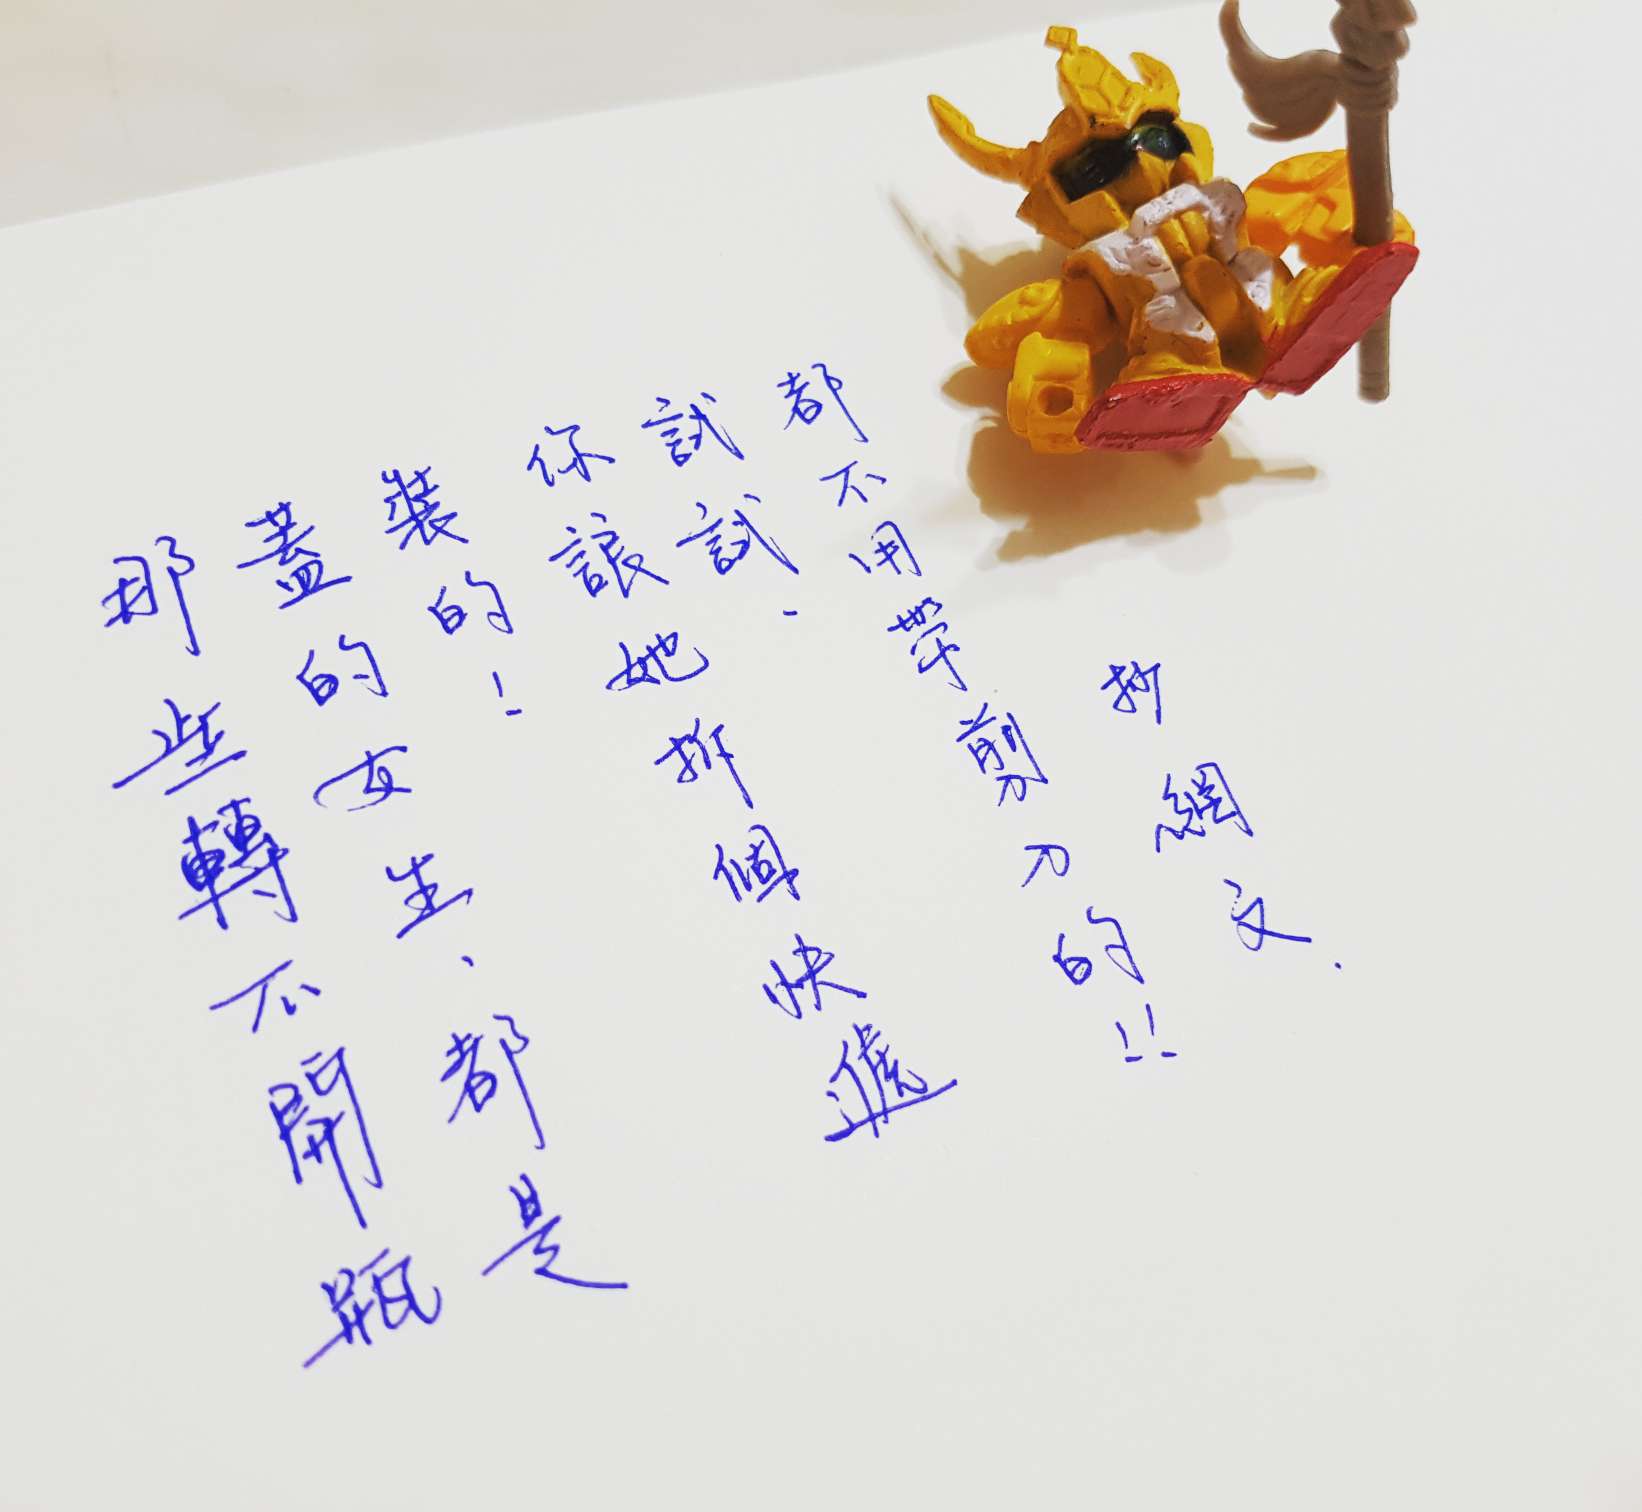 那些轉不開瓶
蓋的女生、都是
裝的!
你讓她拆個快遞
試試.
都不用帶剪刀的!!
抄網文.